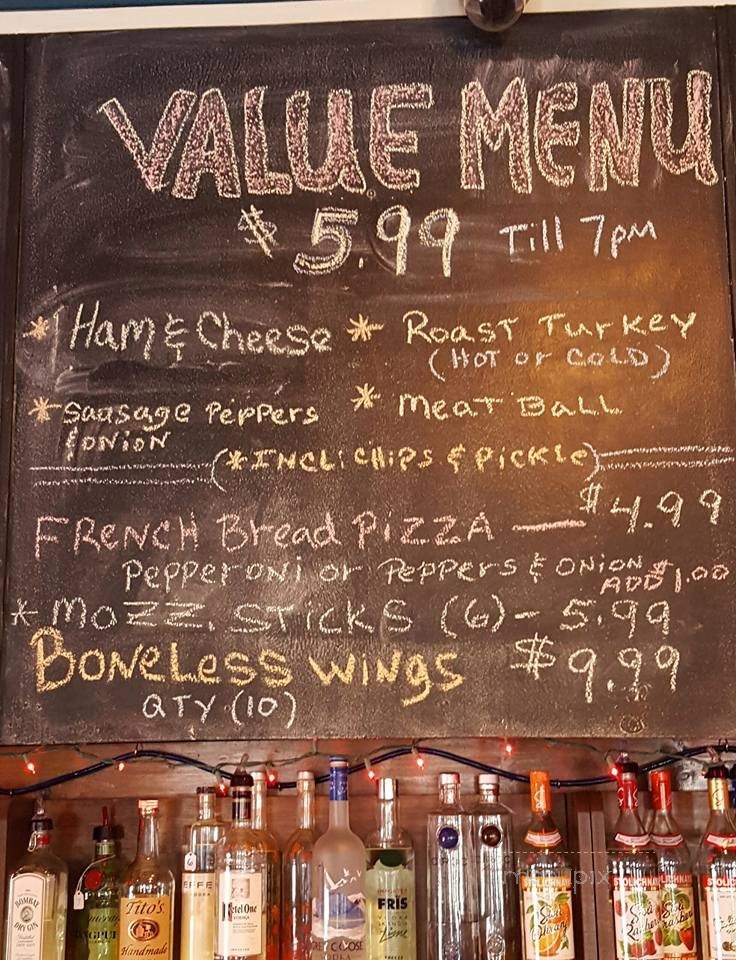 VALUE MENU
$5.99 Till 7pm
* Ham & Cheese * Roast Turkey
(Hot or Cold)
* Saasage Peppers * Meat Ball
& onion
(*Incl: Chips & Pickle)
French Bread Pizza — $4.99
Pepperoni or Peppers & onion $
ADD 1.00
* Mozz. Sticks (6) - 5.99
Boneless Wings $9.99
QTY (10)
BOMBAY
DRY GIN
Tito's
Handmade
Ketel One
GREY GOOSE
VODKA
FRÏS
VODKA
Lime
STOLICHNAYA
STOLICHNAYA
menupix